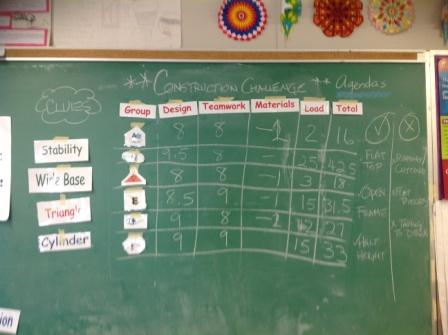 ** CONSTRUCTION CHALLENGE ** Agendas
CLUES
Stability
Wide Base
Triangle
Cylinder
Group Design Teamwork Materials Load Total
8 8 -1 2 16
9.5 8 - 25 42.5
8 8 -1 3 18
E 8.5 9 -1 15 31.5
9 8 -2 12 27
9 9 15 33
FLAT TOP
OPEN FRAME
HALF HEIGHT
ion